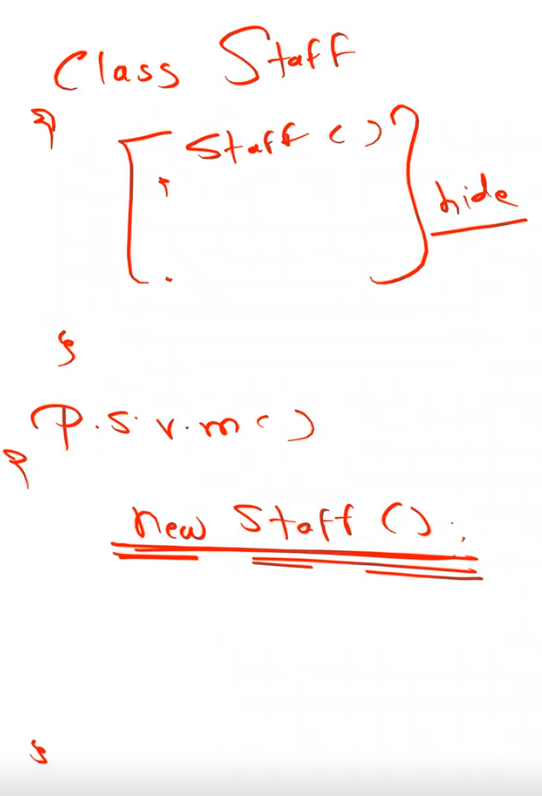 Class Staff
{
Staff ()
{
hide
}
P.S.V.m()
{
new Staff ();
}